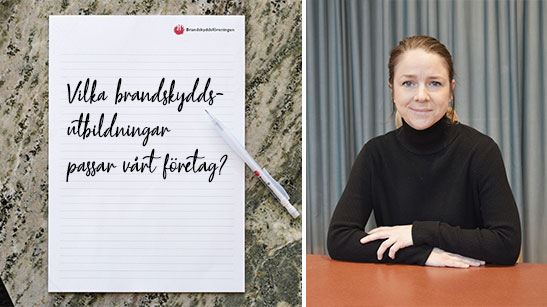 Brandskyddsföreningen
Vilka brandskydds-
utbildningar
passar vårt företag?